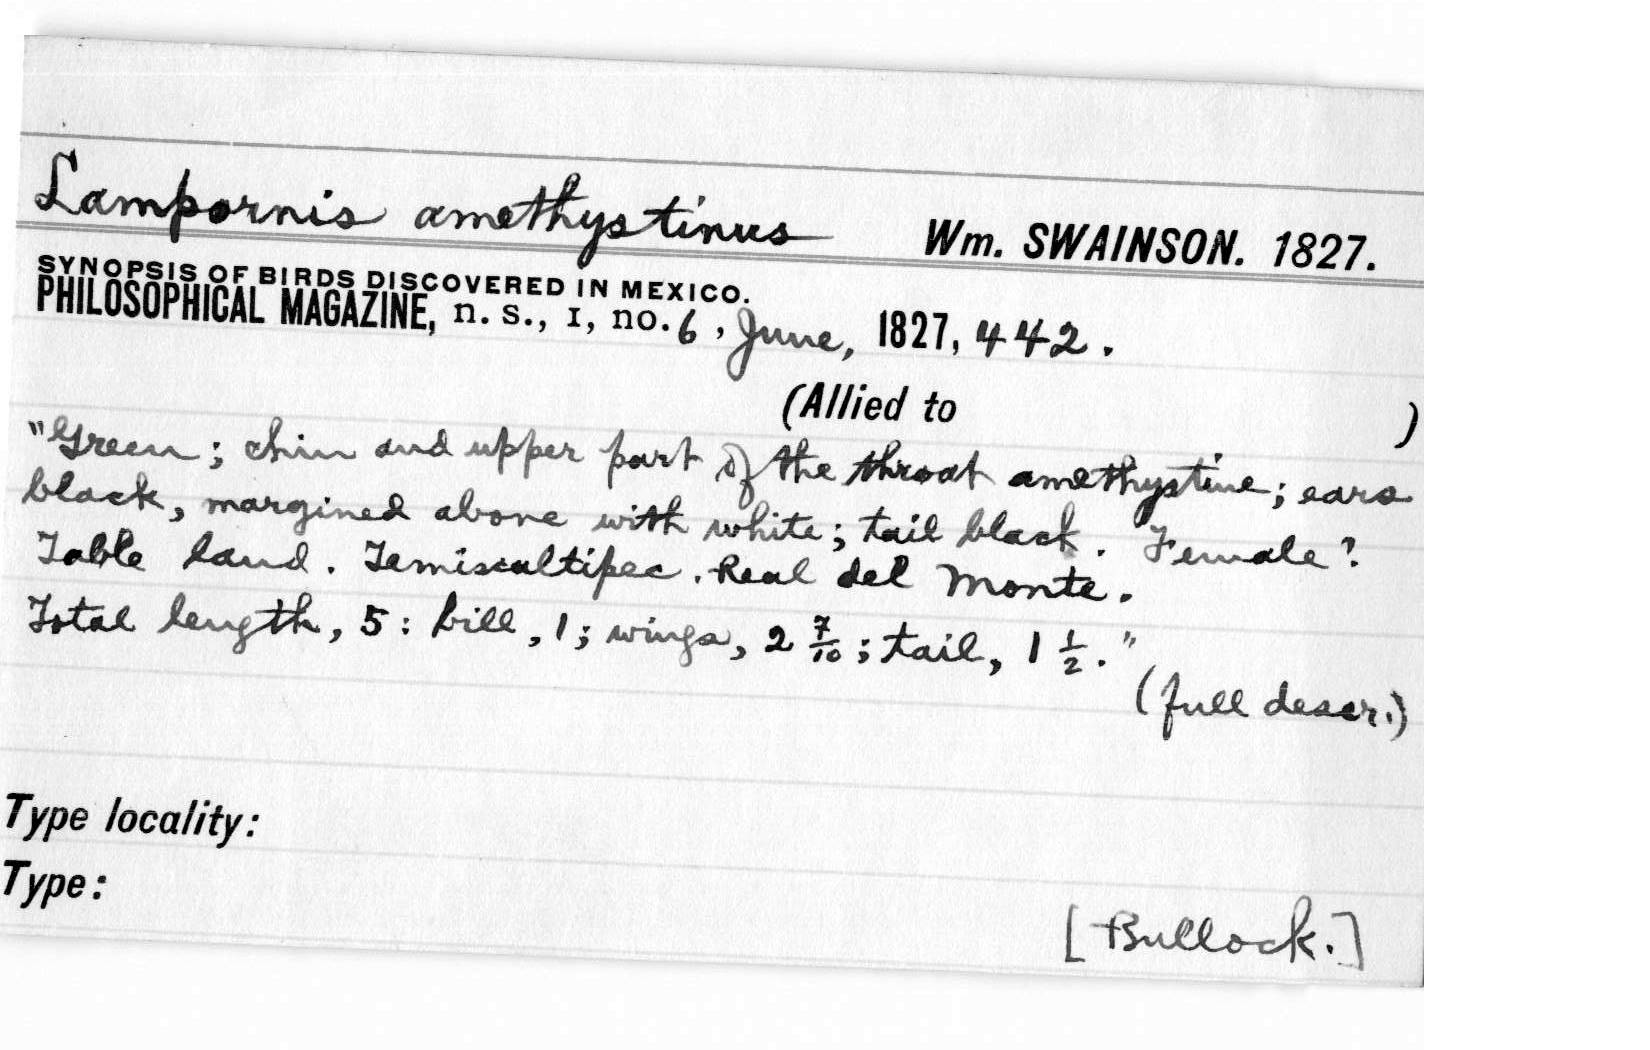 Lampornis amethystinus Wm. SWAINSON. 1827.
SYNOPSIS OF BIRDS DISCOVERED IN MEXICO.
PHILOSOPHICAL MAGAZINE, n. s., I, no. 6, June, 1827, 442.
(Allied to )
"Green; chin and upper part of the throat amethystine; ears
black, margined above with white; tail black. Female?
Table land. Temiscaltipec. Real del Monte.
Total length, 5: bill, 1; wings, 2 7/10; tail, 1 1/2."
(full descr.)
Type locality:
Type:
[Bullock.]